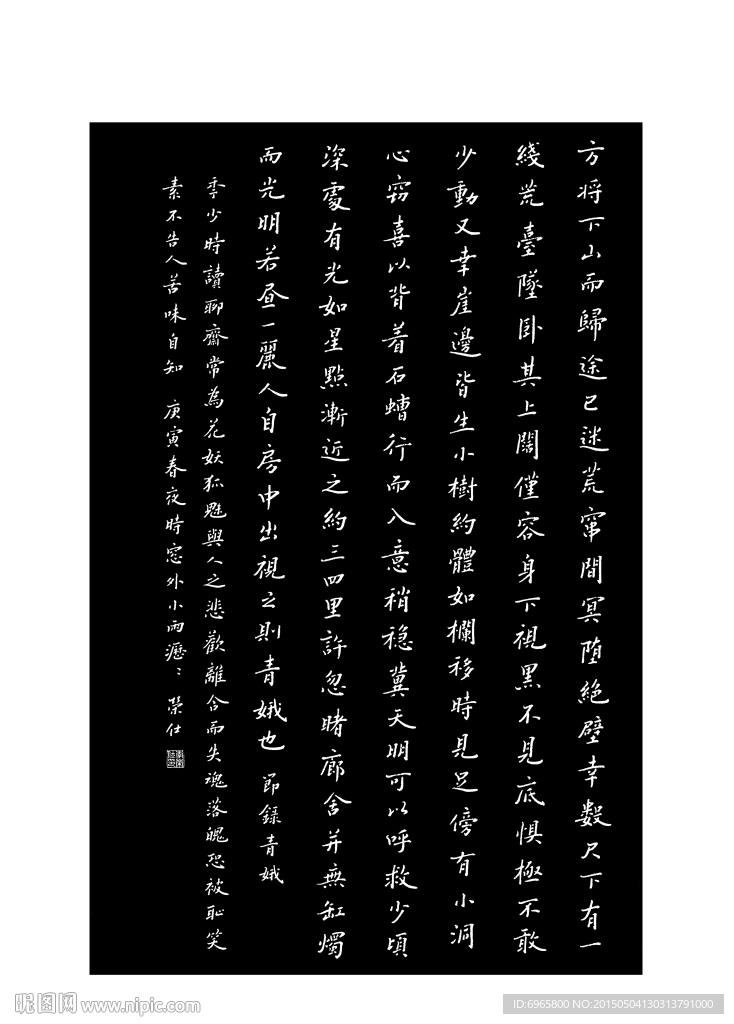 方将下山而歸途已迷荒竄間冥堕絶壁幸数尺下有一
綫荒臺墜卧其上闊僅容身下視黑不見底惧極不敢
少動又幸崖邊皆生小樹約體如欄移時見足傍有小洞
心窃喜以背着石螬行而入意稍穏冀天明可以呼救少頃
深處有光如星點漸近之約三四里許忽睹廊舍并無缸燭
而光明若昼一麗人自房中出視之則青娥也 節錄青娥
季少時讀聊齋常為花妖狐魅與人之悲歡離合而失魂落魄恐被恥笑
素不告人苦味自知 庚寅春夜時窓外小雨瀝〻 榮仕
昵图网 www.nipic.com
ID:6965800 NO:20150504130313791000